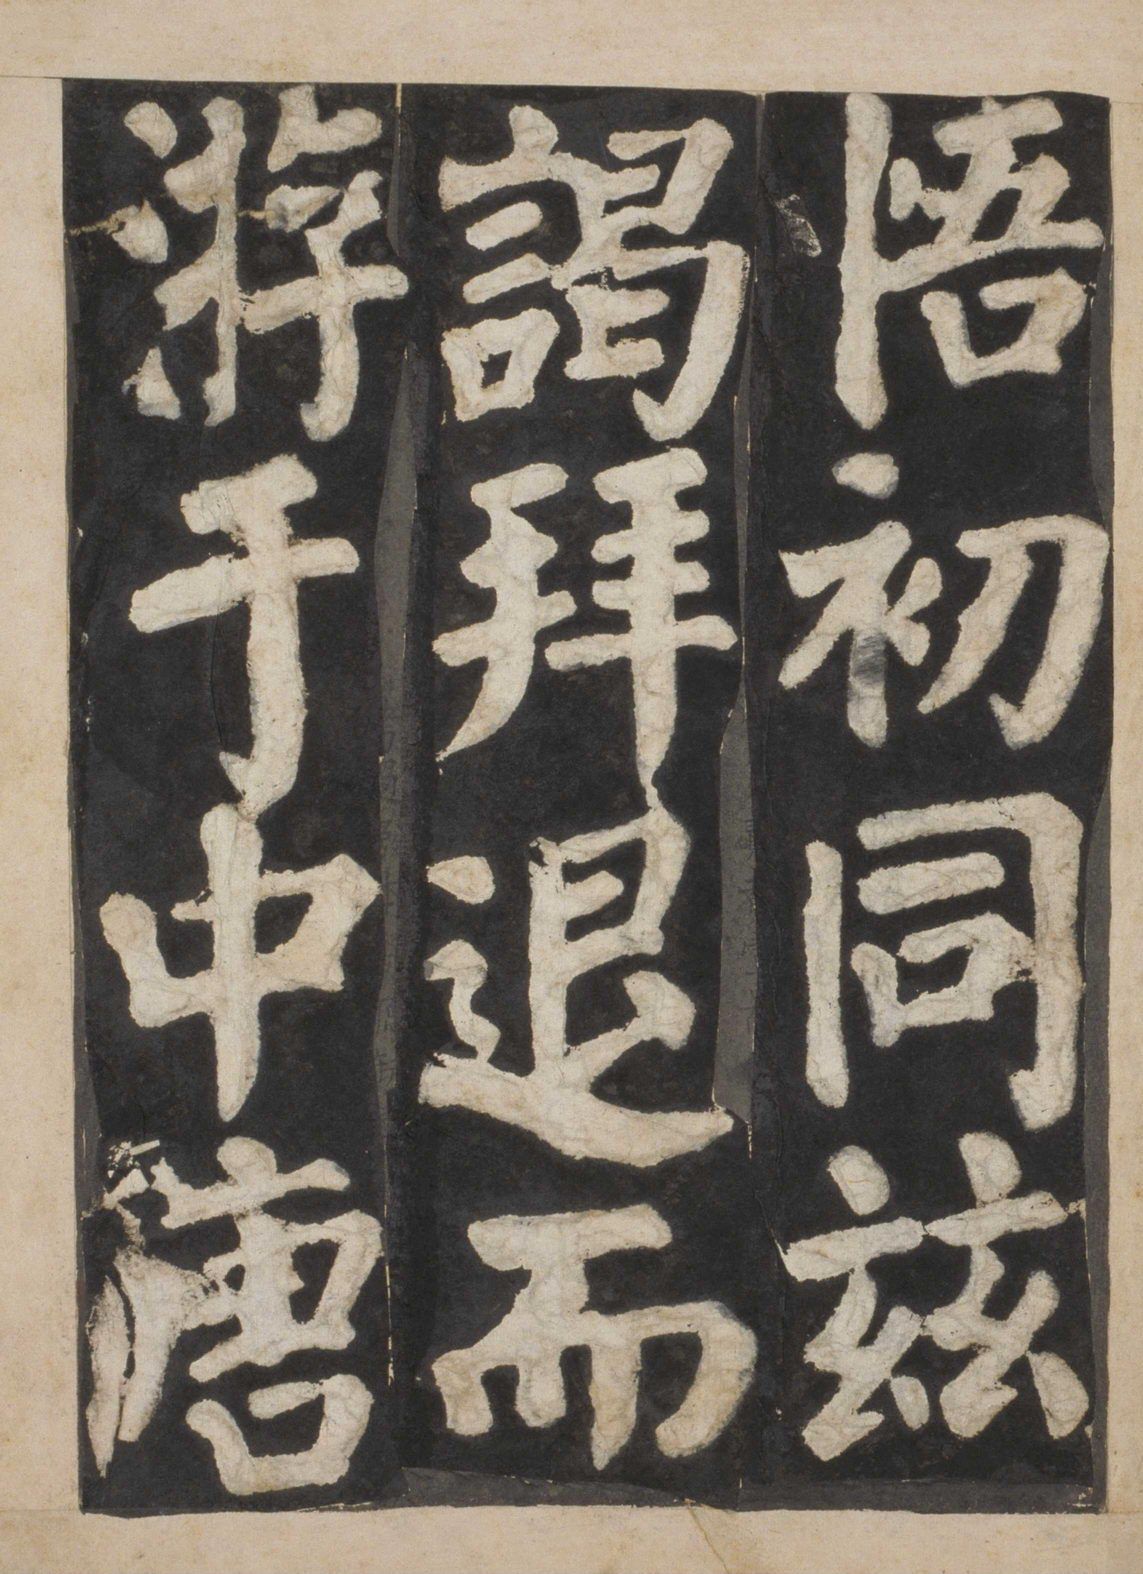 悟初同玆
謁拜退而
游于中唐